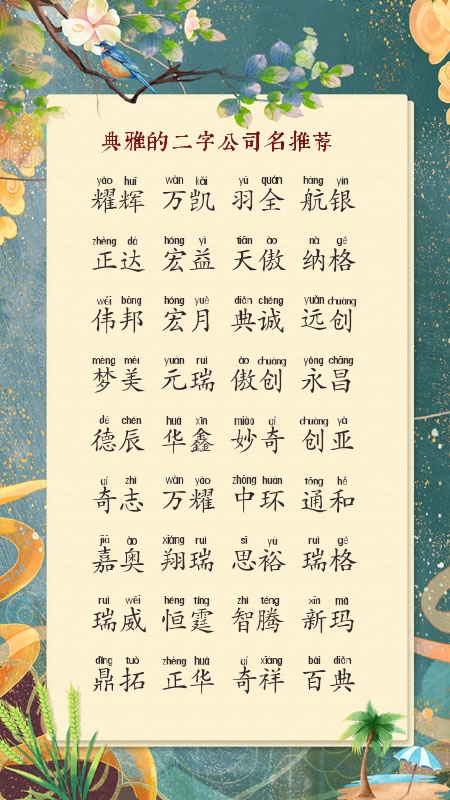 典雅的二字公司名推荐
yào huī wàn kǎi yǔ quán háng yín
耀辉 万凯 羽全 航银
zhèng dá hóng yì tiān ào nà gé
正达 宏益 天傲 纳格
wěi bāng hóng yuè diǎn chéng yuǎn chuàng
伟邦 宏月 典诚 远创
mèng měi yuán ruì ào chuàng yǒng chāng
梦美 元瑞 傲创 永昌
dé chén huá xīn miào qí chuàng yà
德辰 华鑫 妙奇 创亚
qí zhì wàn yào zhōng huán tōng hé
奇志 万耀 中环 通和
jiā ào xiáng ruì sī yù ruì gé
嘉奥 翔瑞 思裕 瑞格
ruì wēi héng tíng zhì téng xīn mǎ
瑞威 恒霆 智腾 新玛
dǐng tuò zhèng huá qí xiáng bǎi diǎn
鼎拓 正华 奇祥 百典